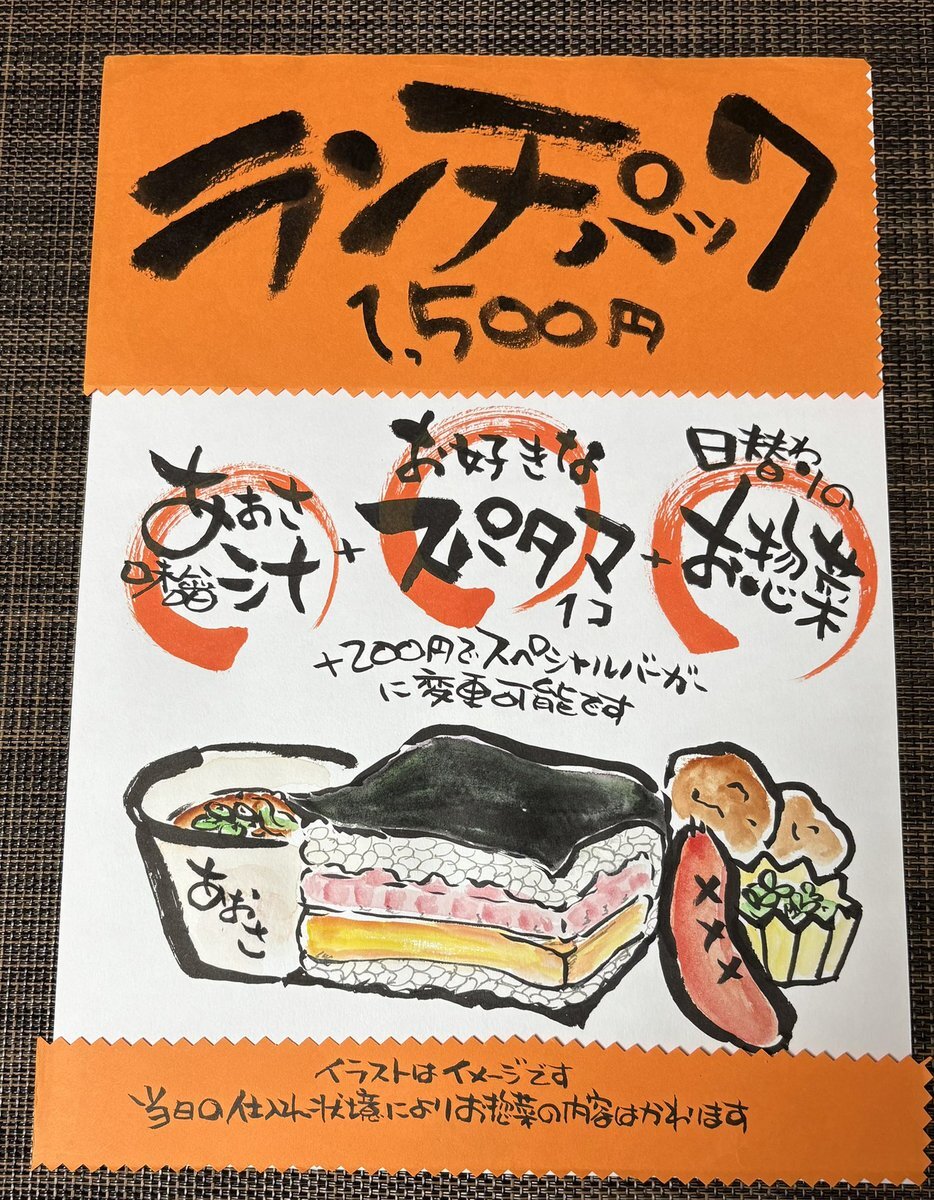 ランチパック
1,500円
あおさ
味噌汁
+
お好きな
スパタマ
1コ
+
日替わりの
お惣菜
+200円でスペシャルバーガー
に変更可能です
あおさ
イラストはイメージです
当日の仕入れ状境によりお惣菜の内容はかわります